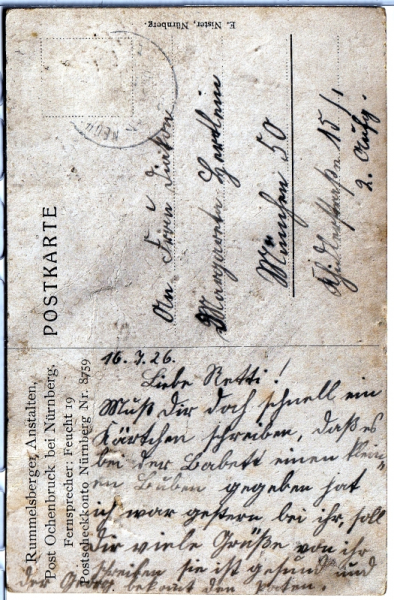 E. Nister, Nürnberg.
POSTKARTE
Rummelsberger Anstalten,
Post Ochenbruck bei Nürnberg,
Fernsprecher: Feucht 19
Postscheckkonto: Nürnberg Nr. 8759
An Frau Diakon
Margarete
München 50
15/1
2. Aufg.
16. 3. 26.
Liebe Retti!
Muß Dir doch schnell ein
Kärtchen schreiben, daß es
bei der Babett einen klein-
en Buben gegeben hat
ich war gestern bei ihr, soll
Dir viele Grüße von ihr
schreiben sie ist gesund und
der bekommt den paten.